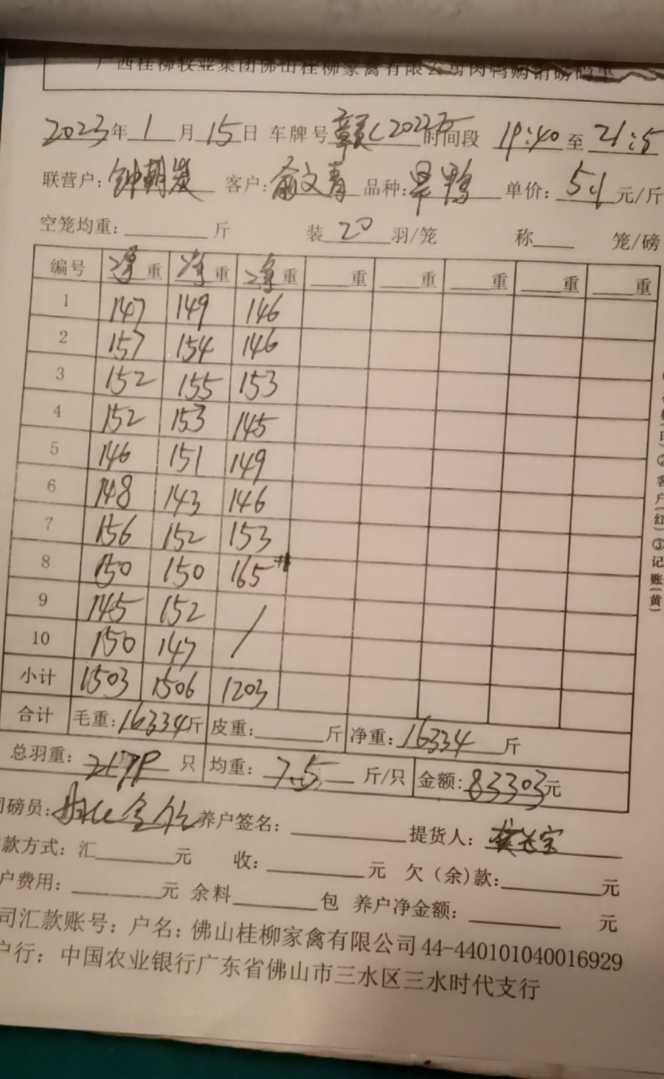 广西桂柳牧业集团佛山桂柳家禽有限公司肉鸭购销磅码单
2023年1月15日 车牌号 赣C 2022 时间段 19:40 至 21:5
联营户: 钟朝 客户: 俞文青 品种: 旱鸭 单价: 5.1 元/斤
空笼均重: 斤 装 20 羽/笼 称 笼/磅
编号 净重 净重 净重 重 重 重 重 重
1 147 149 146
2 157 154 146
3 152 155 153
4 152 153 145
5 146 151 149
6 148 143 146
7 156 152 153
8 150 150 165
9 145 152 /
10 150 147 /
小计 1503 1506 1203
合计 毛重: 16334斤 皮重: 斤 净重: 16334 斤
总羽重: 2179 只 均重: 7.5 斤/只 金额: 83303元
司磅员: 养户签名: 提货人:
款方式: 汇 元 收: 元 欠（余）款: 元
户费用: 元 余料 包 养户净金额: 元
司汇款账号: 户名: 佛山桂柳家禽有限公司 44-440101040016929
户行: 中国农业银行广东省佛山市三水区三水时代支行
② 客户(红) ③ 记账(黄)